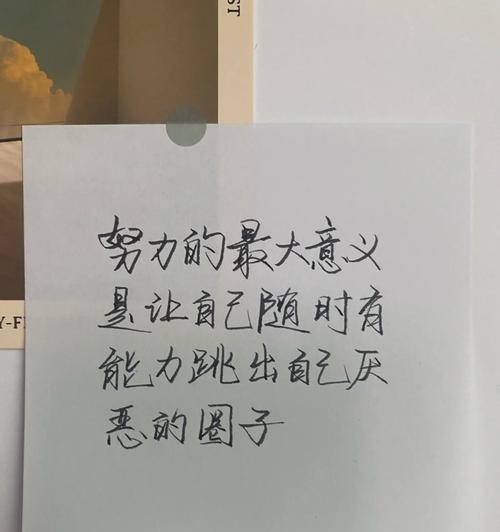 ST
Y-F
努力的最大意义
是让自己随时有
能力跳出自己厌
恶的圈子